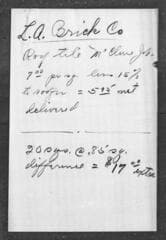 L.A. Brick Co
Roof tile Mc Clure Job.
7.00 per sq less 15%
to roofer = 5.95 net
delivered
20 sqs. @ .85 sq.
difference = $17.00 extra